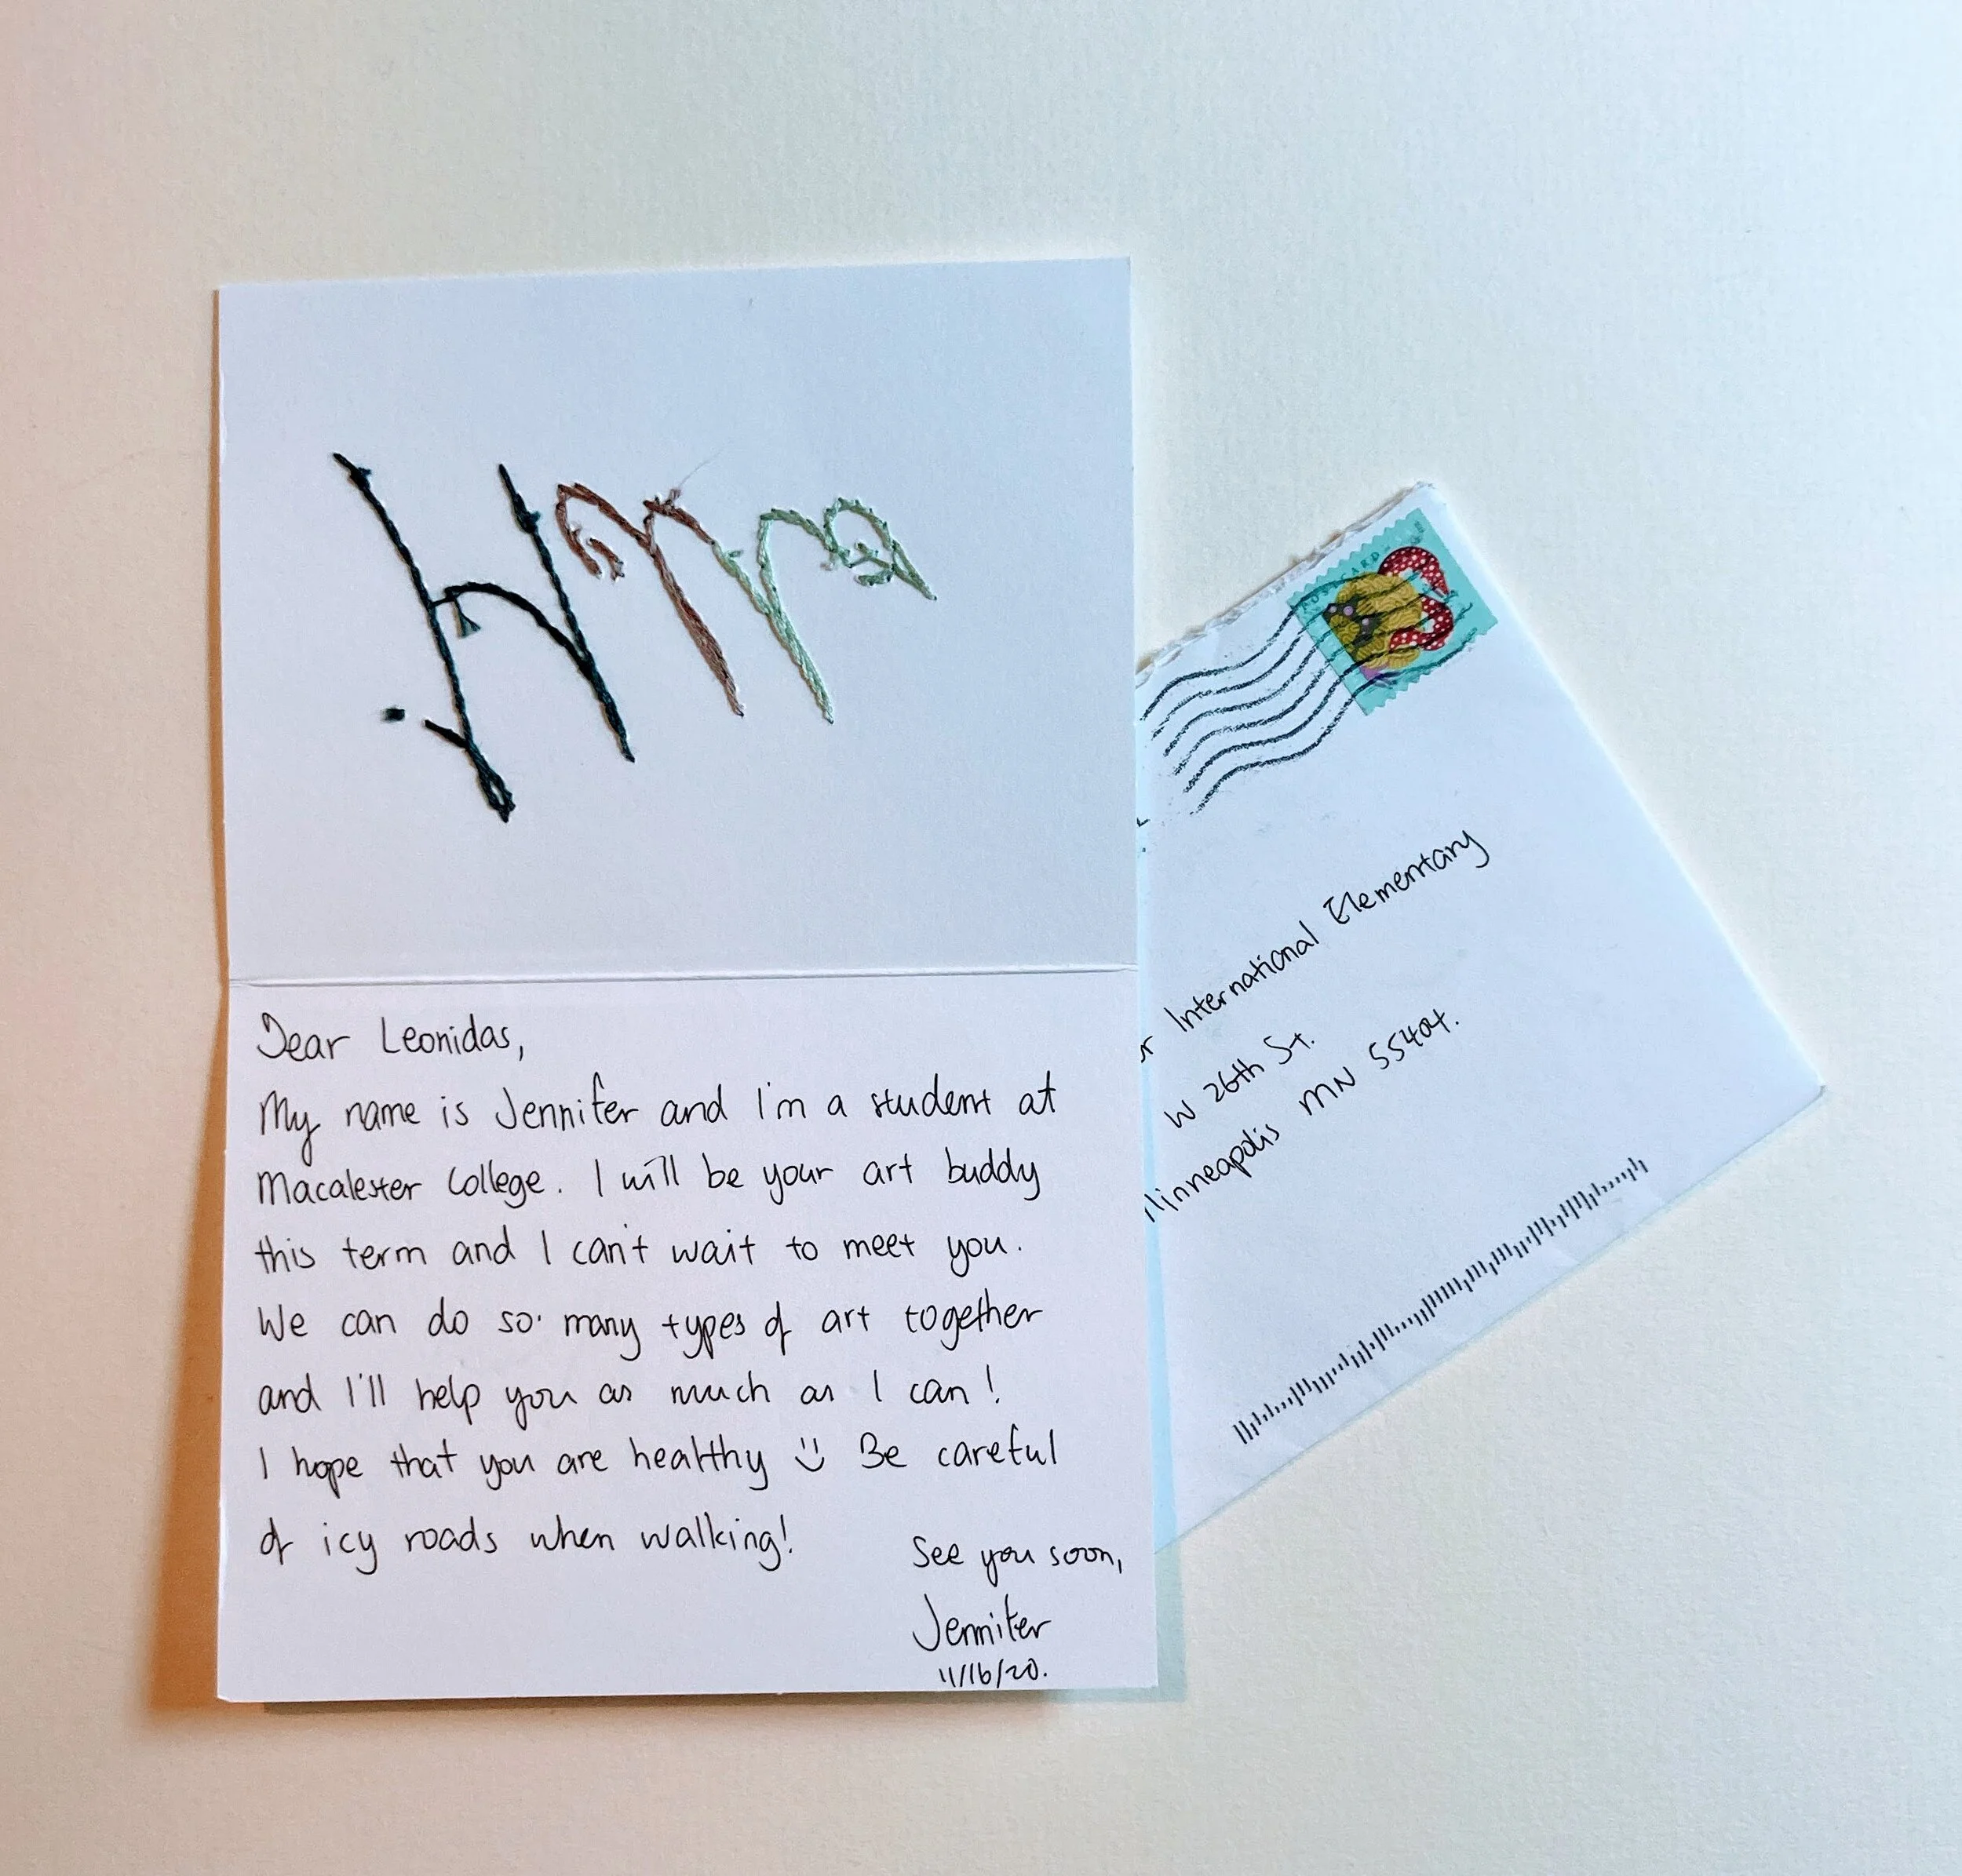 Dear Leonidas,
My name is Jennifer and I'm a student at
Macalester College. I will be your art buddy
this term and I can't wait to meet you.
We can do so many types of art together
and I'll help you as much as I can!
I hope that you are healthy Be careful
of icy roads when walking!
See you soon,
Jennifer
11/16/20.
International Elementary
W 26th St.
MN 55404.